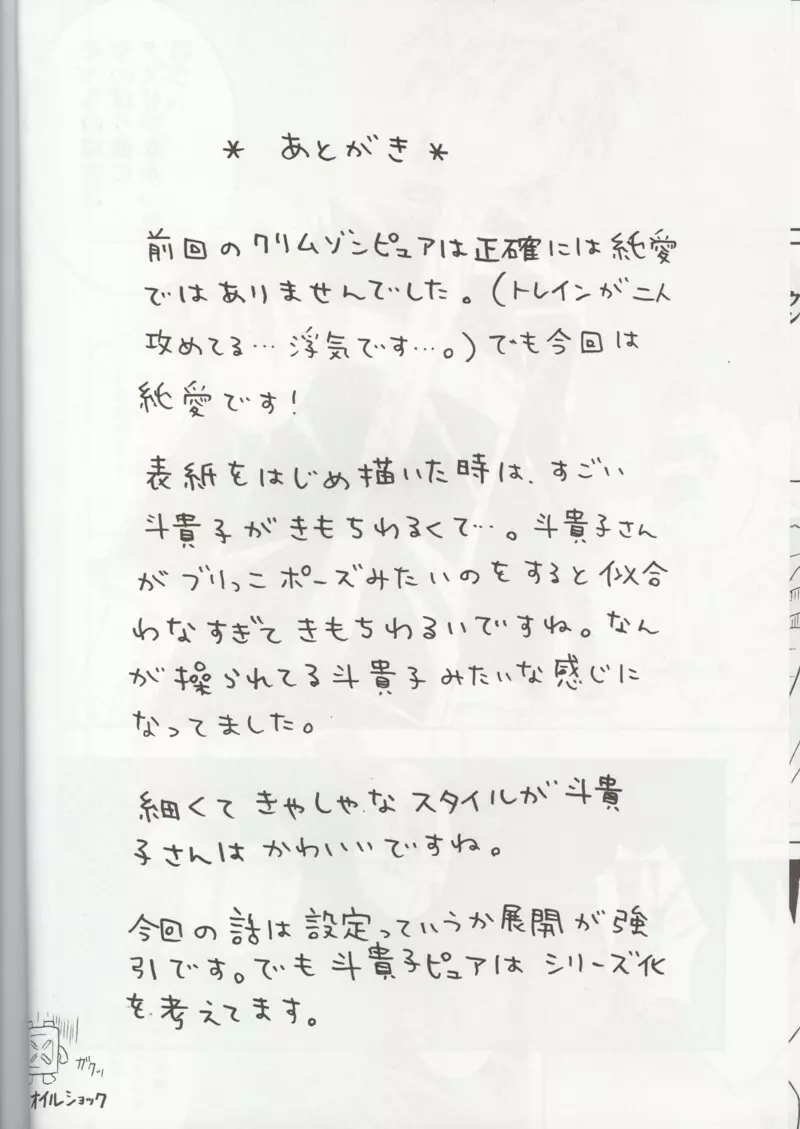 * あとがき *
前回のクリムゾンピュアは正確には純愛
ではありませんでした。(トレインが二人
攻めてる…浮気です…。)でも今回は
純愛です!
表紙をはじめ描いた時は、すごい
斗貴子がきもちわるくて…。斗貴子さん
がブリっこポーズみたいのをすると似合
わなすぎてきもちわるいですね。なん
か操られてる斗貴子みたいな感じに
なってました。
細くてきゃしゃなスタイルが斗貴
子さんはかわいいですね。
今回の話は設定っていうか展開が強
引です。でも斗貴子ピュアはシリーズ化
を考えてます。
ガクッ
オイルショック